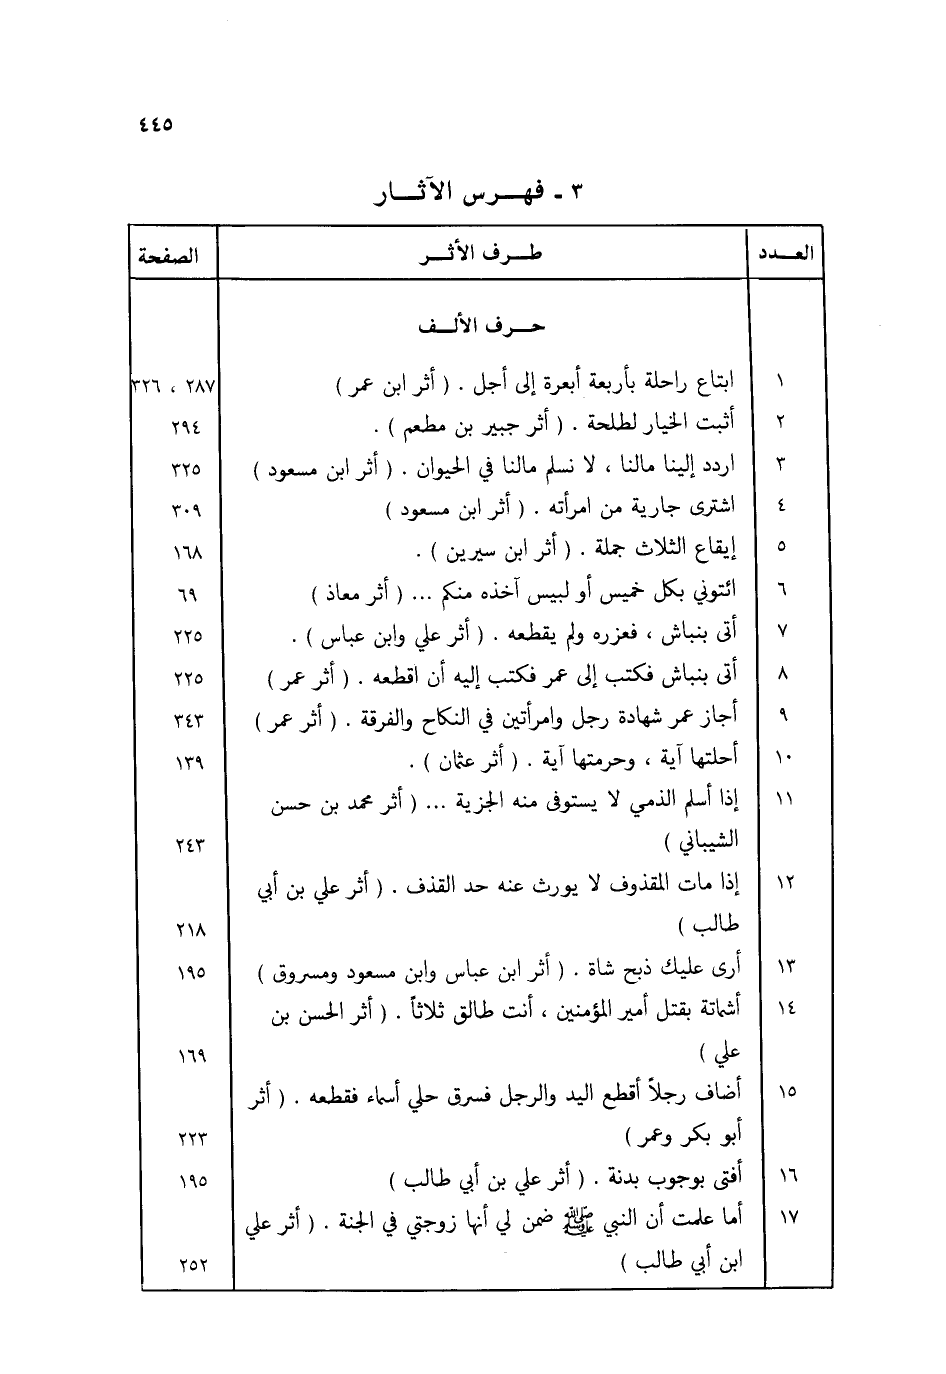 ٤٤٥
٣ - فهـرس الآثـار
العـدد طـرف الأثـر الصفحة
حـرف الألـف
١ ابتاع راحلة بأربعة أبعرة إلى أجل . ( أثر ابن عمر ) ٢٨٧ ، ٣٢٦
٢ أثبت الخيار لطلحة . ( أثر جبير بن مطعم ) . ٢٩٤
٣ اردد إلينا مالنا ، لا نسلم مالنا في الحيوان . ( أثر ابن مسعود ) ٣٢٥
٤ اشترى جارية من امرأته . ( أثر ابن مسعود ) ٣٠٩
٥ إيقاع الثلاث جملة . ( أثر ابن سيرين ) . ١٦٨
٦ ائتوني بكل خميس أو لبيس آخذه منكم ... ( أثر معاذ ) ٦٩
٧ أتى بنباش ، فعزره ولم يقطعه . ( أثر علي وابن عباس ) . ٢٢٥
٨ أتى بنباش فكتب إلى عمر فكتب إليه أن اقطعه . ( أثر عمر ) ٢٢٥
٩ أجاز عمر شهادة رجل وامرأتين في النكاح والفرقة . ( أثر عمر ) ٣٤٣
١٠ أحلتها آية ، وحرمتها آية . ( أثر عثمان ) . ١٣٩
١١ إذا أسلم الذمي لا يستوفى منه الجزية ... ( أثر محمد بن حسن
الشيباني ) ٢٤٣
١٢ إذا مات المقذوف لا يورث عنه حد القذف . ( أثر علي بن أبي
طالب ) ٢١٨
١٣ أرى عليك ذبح شاة . ( أثر ابن عباس وابن مسعود ومسروق ) ١٩٥
١٤ أشماتة بقتل أمير المؤمنين ، أنت طالق ثلاثاً . ( أثر الحسن بن
علي ) ١٦٩
١٥ أضاف رجلاً أقطع اليد والرجل فسرق حلي أسماء فقطعه . ( أثر
أبو بكر وعمر ) ٢٢٣
١٦ أفتى بوجوب بدنة . ( أثر علي بن أبي طالب ) ١٩٥
١٧ أما علمت أن النبي ﷺ ضمن لي أنها زوجتي في الجنة . ( أثر علي
ابن أبي طالب ) ٢٥٢